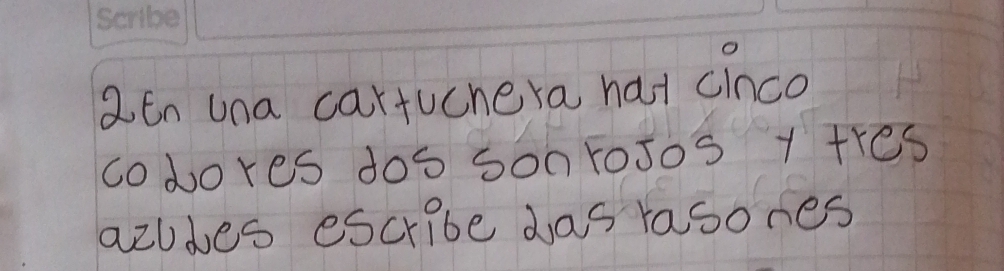 Scribe
2 En una cartuchera hay cinco
colores dos son rojos y tres
azules escribe las rasones